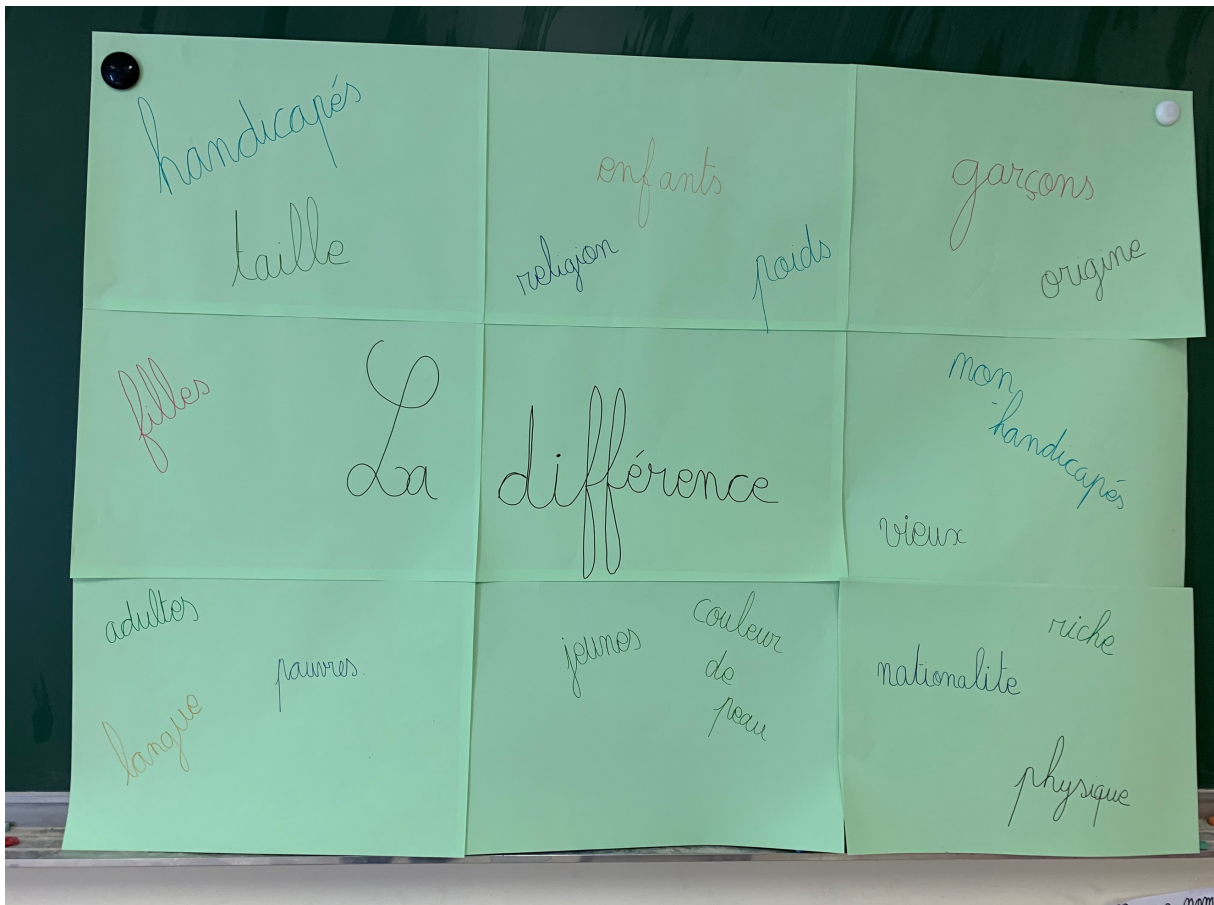 handicapés
taille
enfants
religion
poids
garçons
origine
filles
La différence
non
-handicapés
vieux
adultes
pauvres.
langue
jeunes
couleur
de
peau
riche
nationalite
physique